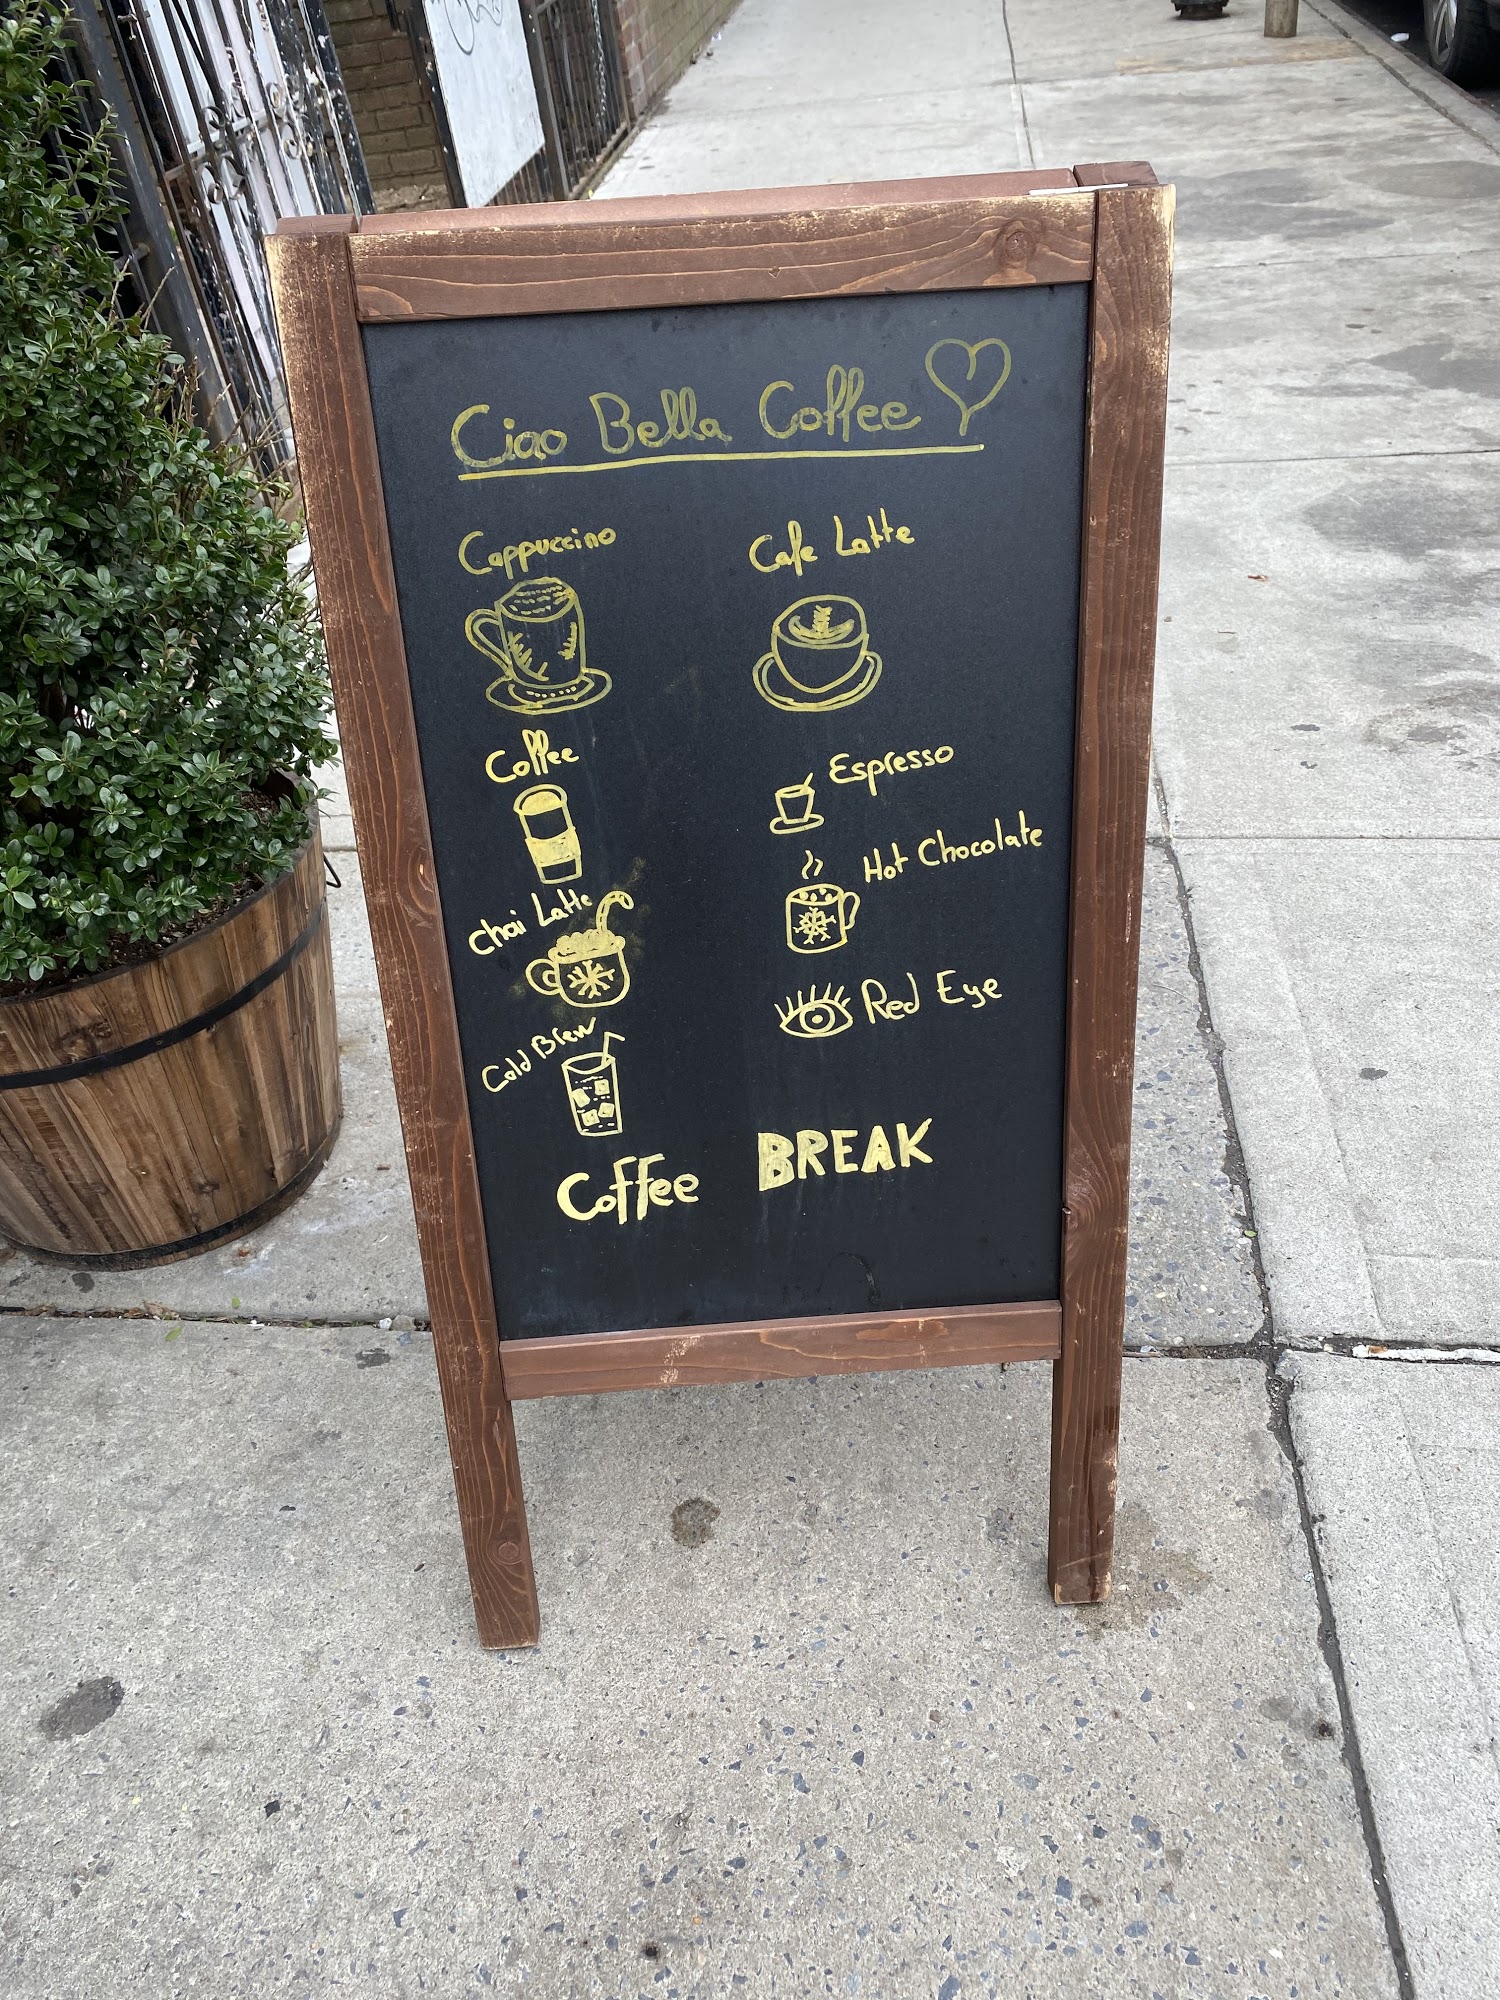 Ciao Bella Coffee
Cappuccino
Cafe Latte
Coffee
Espresso
Chai Latte
Hot Chocolate
Cold Brew
Red Eye
Coffee BREAK